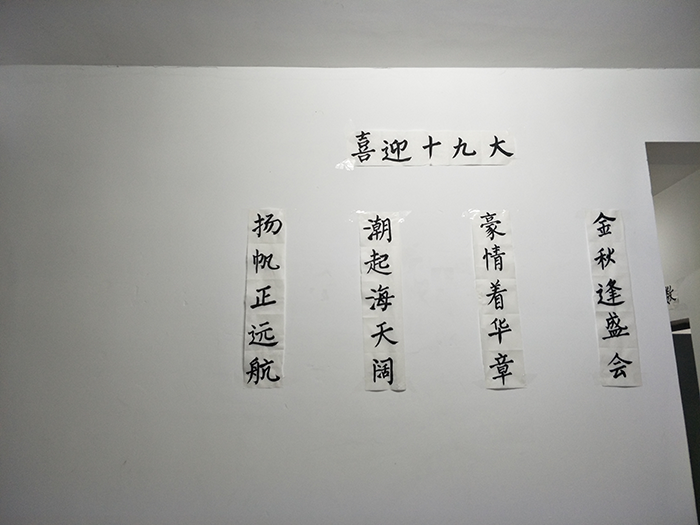 喜迎十九大
金秋逢盛会
豪情着华章
潮起海天阔
扬帆正远航